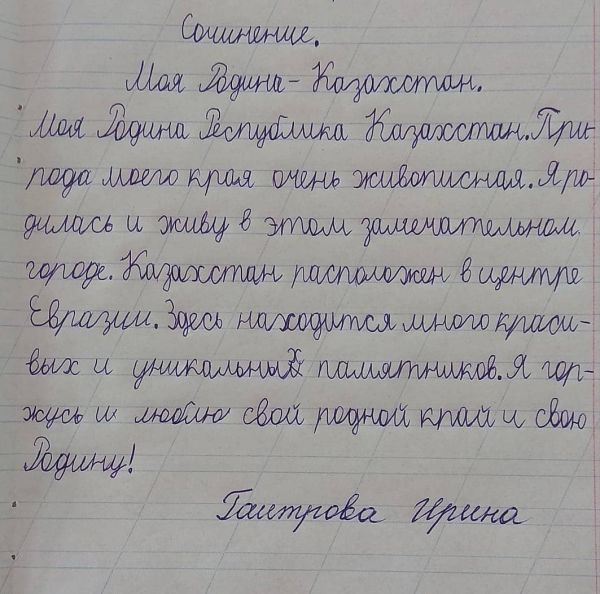 Сочинение.
Моя Родина - Казахстан.
Моя Родина Республика Казахстан. При-
рода моего края очень живописная. Я ро-
дилась и живу в этом замечательном
городе. Казахстан расположен в центре
Евразии. Здесь находится много краси-
вых и уникальных памятников. Я гор-
жусь и люблю свой родной край и свою
Родину!
Гаитрова Ирина